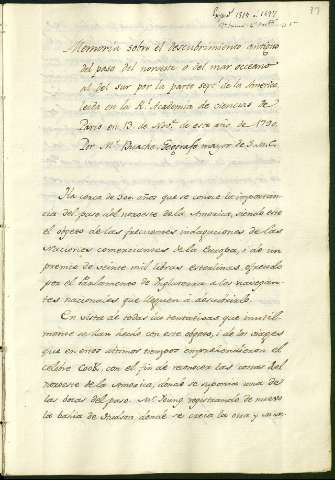 Memoria sobre el descubrimiento antiguo
del paso del noroeste o del mar oceano
al del sur por la parte sept.l de la America
leida en la R.l Academia de ciencias de
Paris en 13 de Nov.e de este año de 1790.
Por M.r Buache, Geografo mayor de S.M.C.
Ha cerca de 300 años que se conoce la importan-
cia del paso del noroeste de la America, siendo este
el objeto de las frecuentes indagaciones de las
Naciones comerciantes de la Europa, i de un
premio de veinte mil libras esterlinas, ofrecido
por el Parlamento de Inglaterra a los navegan-
tes nacionales que lleguen a descubrirlo.
En vista de todas las tentativas que inutil-
mente se han hecho con este objeto, i de los viages
que en estos ultimos tiempos emprehendieron el
celebre Cook, con el fin de reconocer las costas del
noroeste de la America, donde se suponia una de
las bocas del paso, M.r Young, registrando de nuevo
la bahia de Hudson donde se creia la otra, y M.r